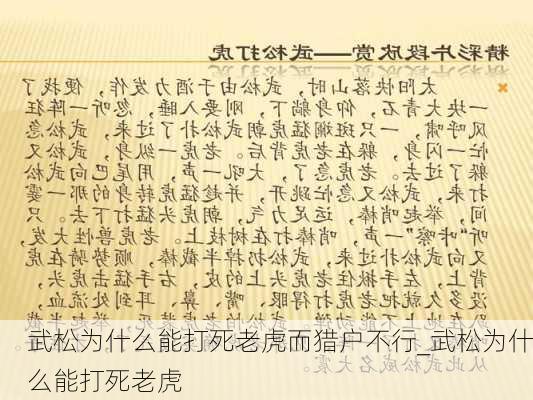 精彩片段欣赏——武松打虎
太阳快落山时，武松由于酒力发作，便找了
一块大青石，仰身躺下，刚要入睡，忽听一阵狂
风呼啸，一只斑斓猛虎朝武松扑了过来，武松急
忙一闪身，躲在老虎背后。老虎一纵身，武松又
躲了过去。老虎急了，大吼一声，用尾巴向武松
打来，武松又急忙跳开，并趁猛虎转身的那一霎
间，举起哨棒，运足力气，朝虎头猛打下去。只
听“咔嚓”一声，哨棒打在树枝上。老虎兽性大发，
又向武松扑过来，武松扔掉半截棒，顺势骑在虎
背上，左手揪住老虎头上的皮，右手猛击虎头，
没多久就把老虎打得眼、嘴、鼻、耳到处流血，
趴在地上不能动弹。武松怕老虎装死，举起半截
从此武松威名大震。
武松为什么能打死老虎而猎户不行_武松为什
么能打死老虎